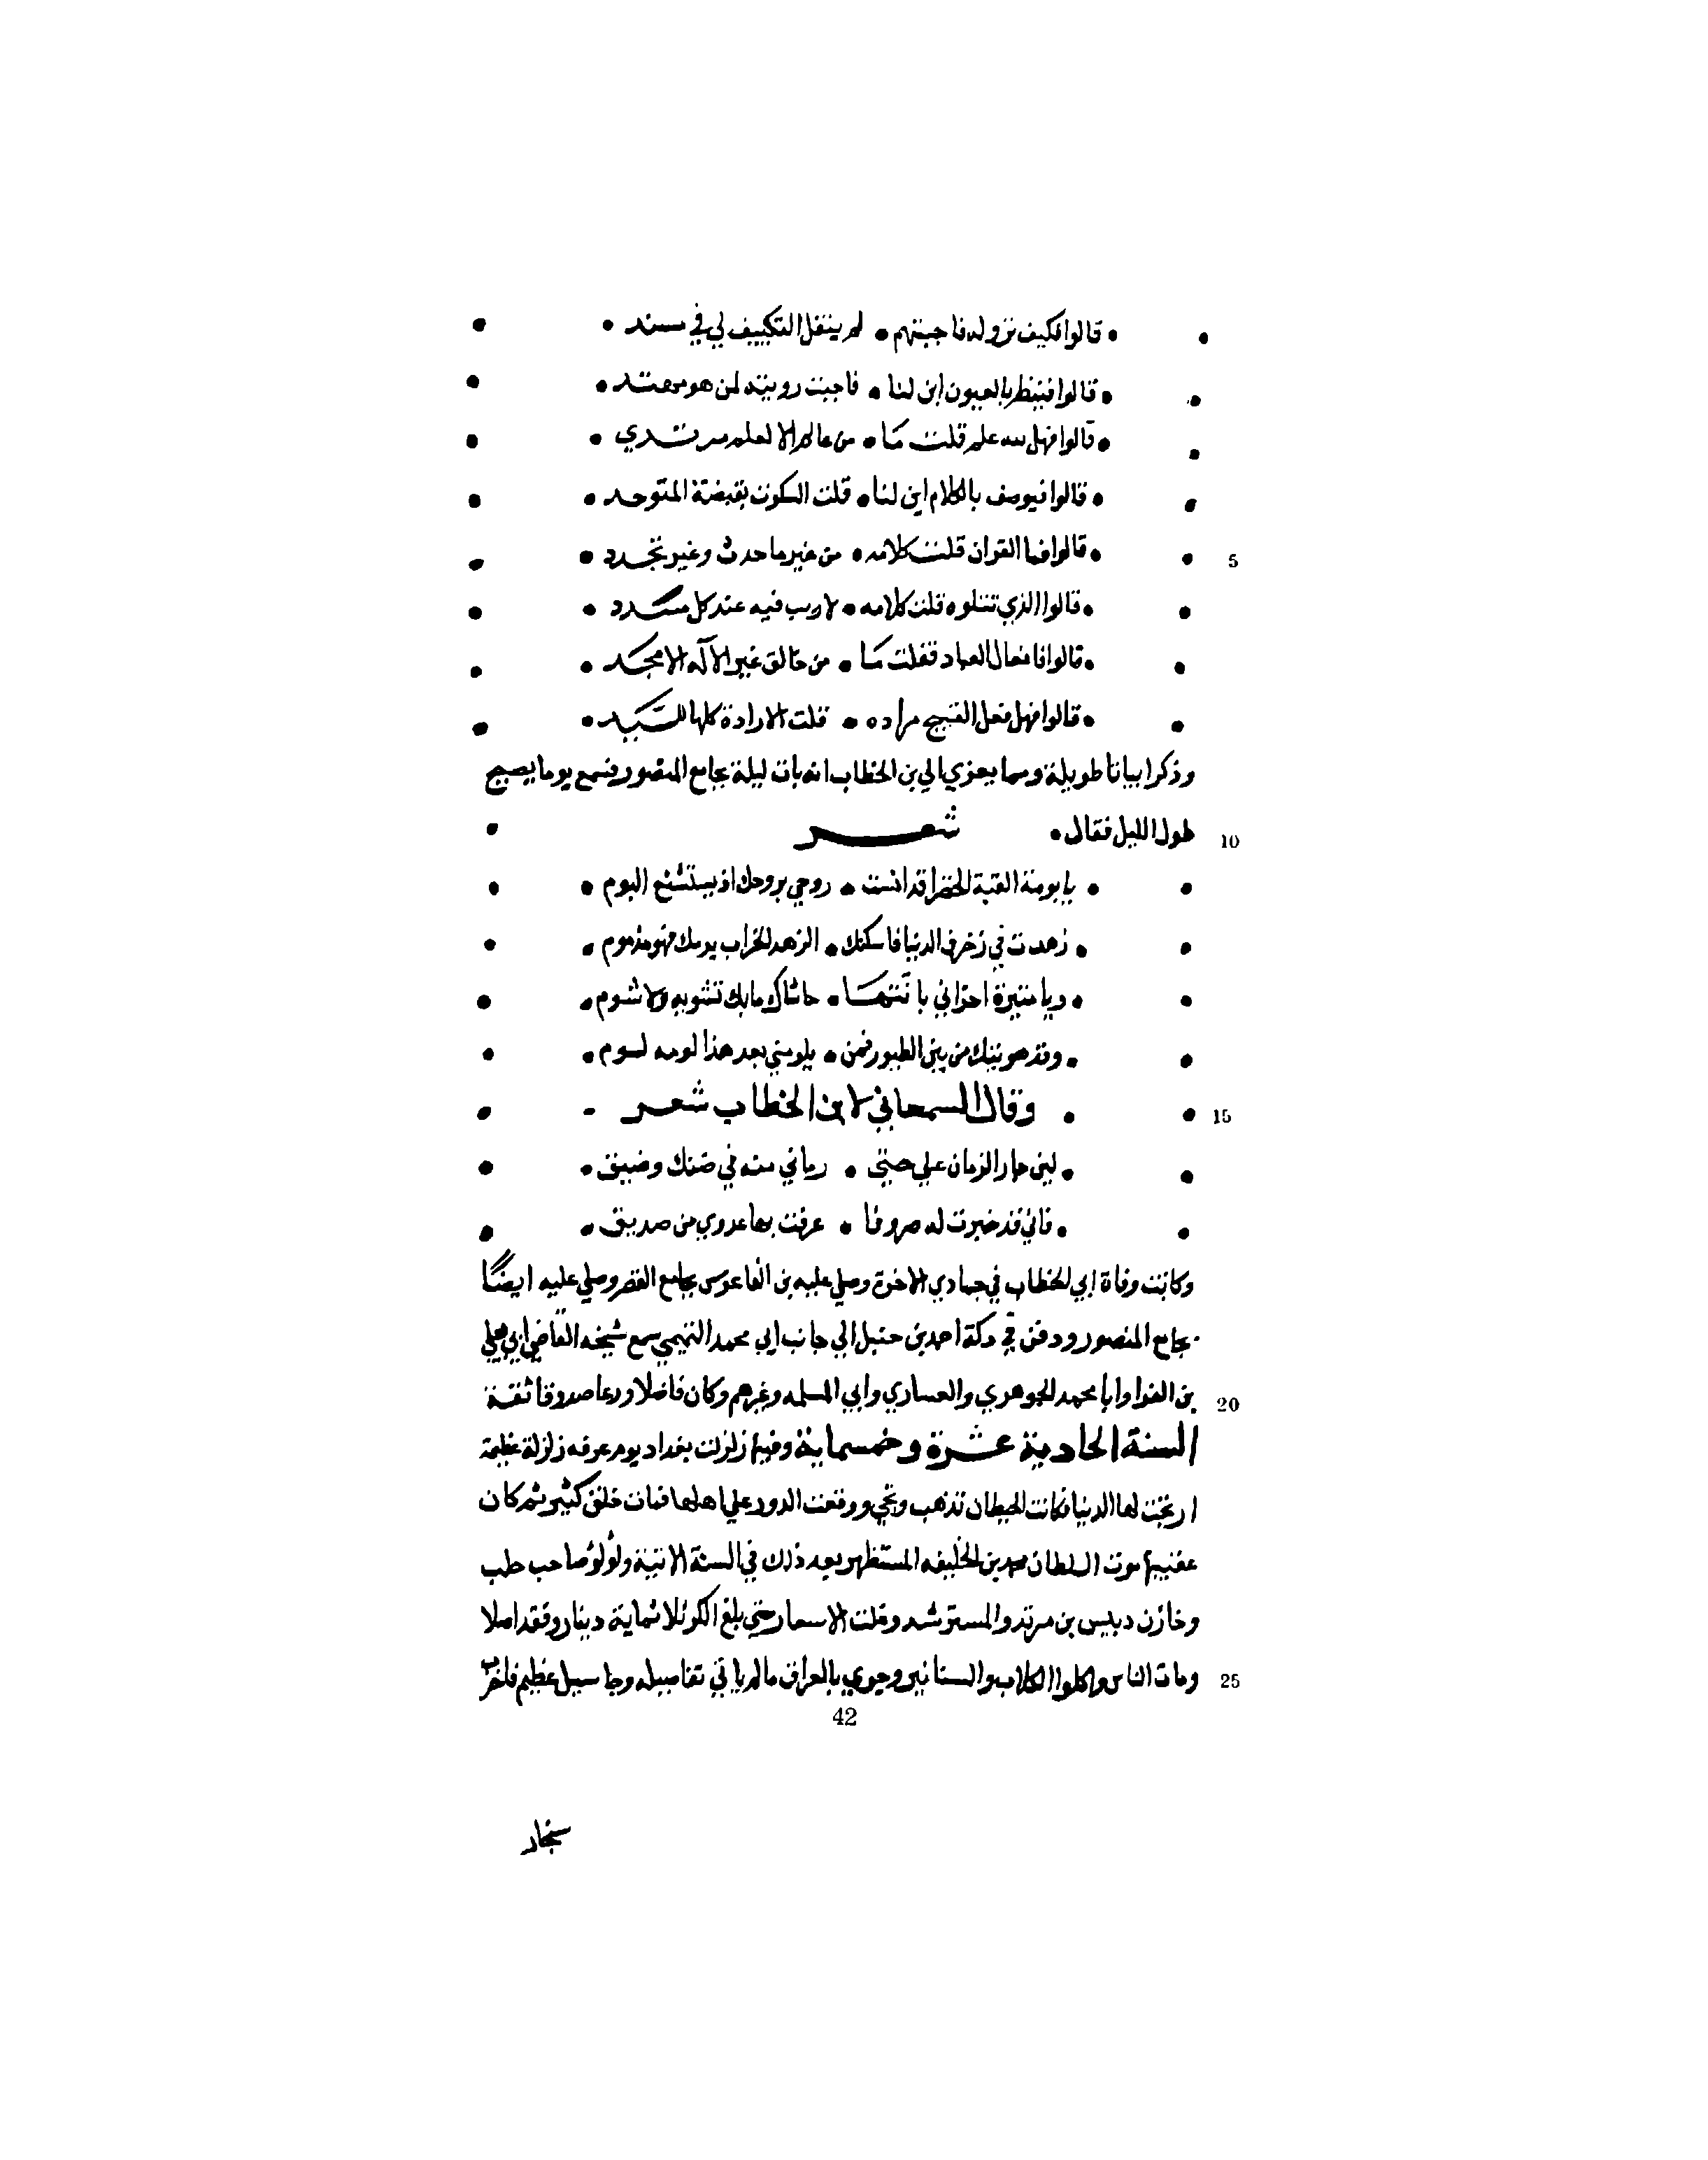 • • قالوا فكيف نزوله فاجبتهم • لم ينقل التكييف لي في مسند • •
• • قالوا فينظر بالعيون ابن لنا • فاجبت رويته لمن هو مهتد • •
• • قالوا فهل لله علم قلت مَا • من عالم الا لعلم مرتدي • •
• • قالوا فيوصف بالكلام ابن لنا • قلت السكوت نقيضة المتوحد • •
5 • • قالوا فما القران قلت كلامه • من غير ما حدث وغير تجدد • •
• • قالوا الذي تتلوه قلت كلامه • لا ريب فيه عند كل مسدد • •
• • قالوا فافعال العباد فقلت مَا • من خالق غير الآله الامجد • •
• • قالوا فهل فعل القبيح مراده • قلت الارادة كلها للسَّيد • •
وذكر ابياتا طويلة ومما يعزي الي بن الخطاب انه بات ليلة بجامع المنصور فسمع يوما يصيح
10 طول الليل فقال • شعر •
• • يا بومة القبة الخضرا قد انست • روحي بروحك اذ يستشنع البوم • •
• • زهدت في زخرف الدنيا فاسكنك • الزهد الخراب يرمك فهو مذموم • •
• • ويا منيرة احزاني با نتهَا • حاشاك مابك تشويه ولا شوم • •
• • وقد هويتك من بين الطيور فمن • يلومني بعد هذا لومه لوم • •
15 • • وقال السمعاني لابن الخطاب شعر - •
• • لين جار الزمان علي حتي • رماني منه في ضنك وضيق • •
• • فاني قد خبرت له صروفا • عرفت بها عدوي من صديق • •
وكانت وفاة ابي الخطاب في جمادي الاخرة وصلي عليه بن الفاعوس بجامع القصر وصلي عليه ايضًا
بجامع المنصور ودفن في دكة احمد بن حنبل الي جانب ابي محمد التميمي سمع شيخه القاضي ابي يعلي
20 بن الفرا وابا محمد الجوهري والعساري وابي المسلمه وغيرهم وكان فاضلا ورعا صدوقا ثقة
السنة الحادية عشرة وخمسماية وفيها زلزلت بغداد يوم عرفه زلزلة عظيمة
ارتجت لها الدنيا فكانت الحيطان تذهب وتجي ووقعت الدور علي اهلها فمات خلق كثير ثم كان
عقيبها موت السلطان محمد بن الخليفه المستظهر بعد ذلك في السنة الاتية ولؤلؤ صاحب حلب
وخازن دبيس بن مرتد والمسترشد وغلت الاسعار حتي بلغ الكر ثلاثماية دينار وفقد اصلا
25 ومات الناس واكلوا الكلاب والسنانير وجري بالعراق ما لم ياتي تفاصيله وجا سيل عظيم فاخرب
42
سنجار